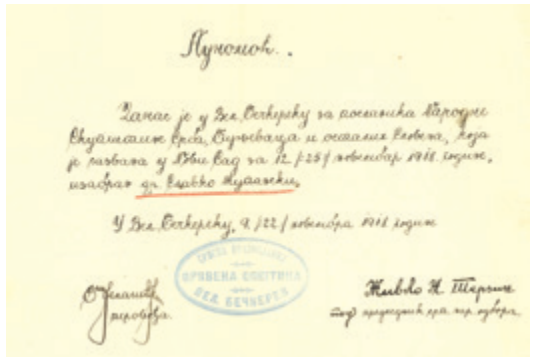 Пуномоћ.
Данас је у Вел. Бечкереку за посланика Народне
Скупштине Срба, Буњеваца и осталих Словена, која
је сазвана у Нови Сад за 12 /25/ новембар 1918. године,
изабран др. Славко
У Вел. Бечкереку, 9. /22/ новембра 1918 године
ЦРКВЕНА ОПШТИНА
ВЕЛ. БЕЧКЕРЕК
Живко Н. Терзин
председник срп. нар. одбора.